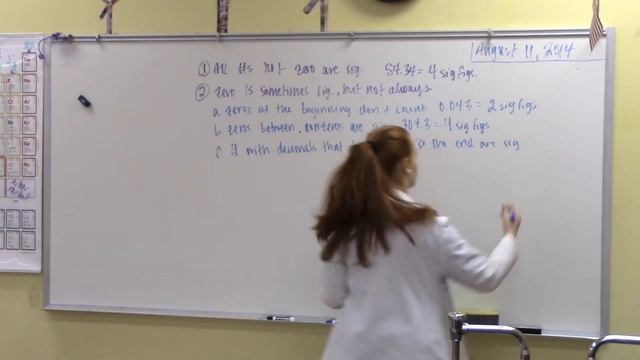 August 11, 2014
① All #s not zero are sig. 54.34 = 4 sig figs.
② Zero is sometimes sig., but not always
a. zeros at the beginning don't count 0.043 = 2 sig figs
b. zeros between nonzeros are 304.3 = 4 sig figs
c. # with decimals that the end are sig